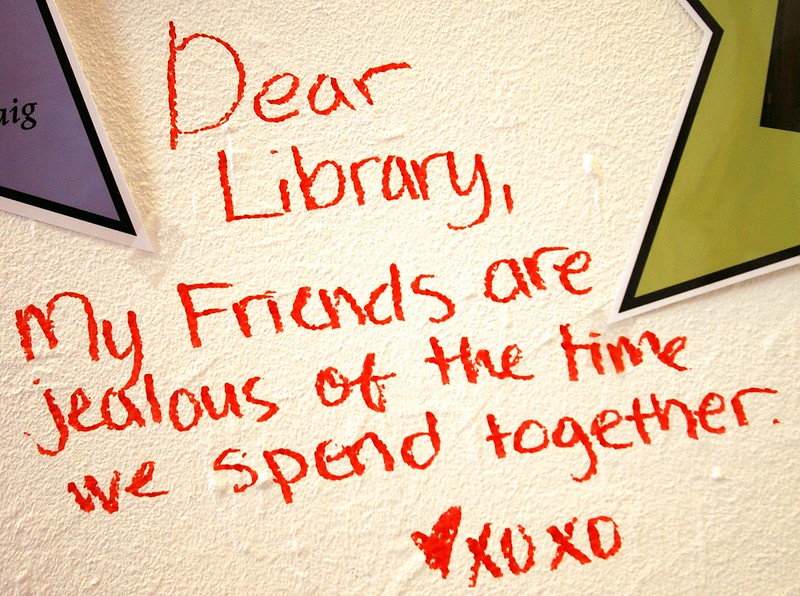 Dear
Library,
My Friends are
jealous of the time
we spend together.
♥xoxo